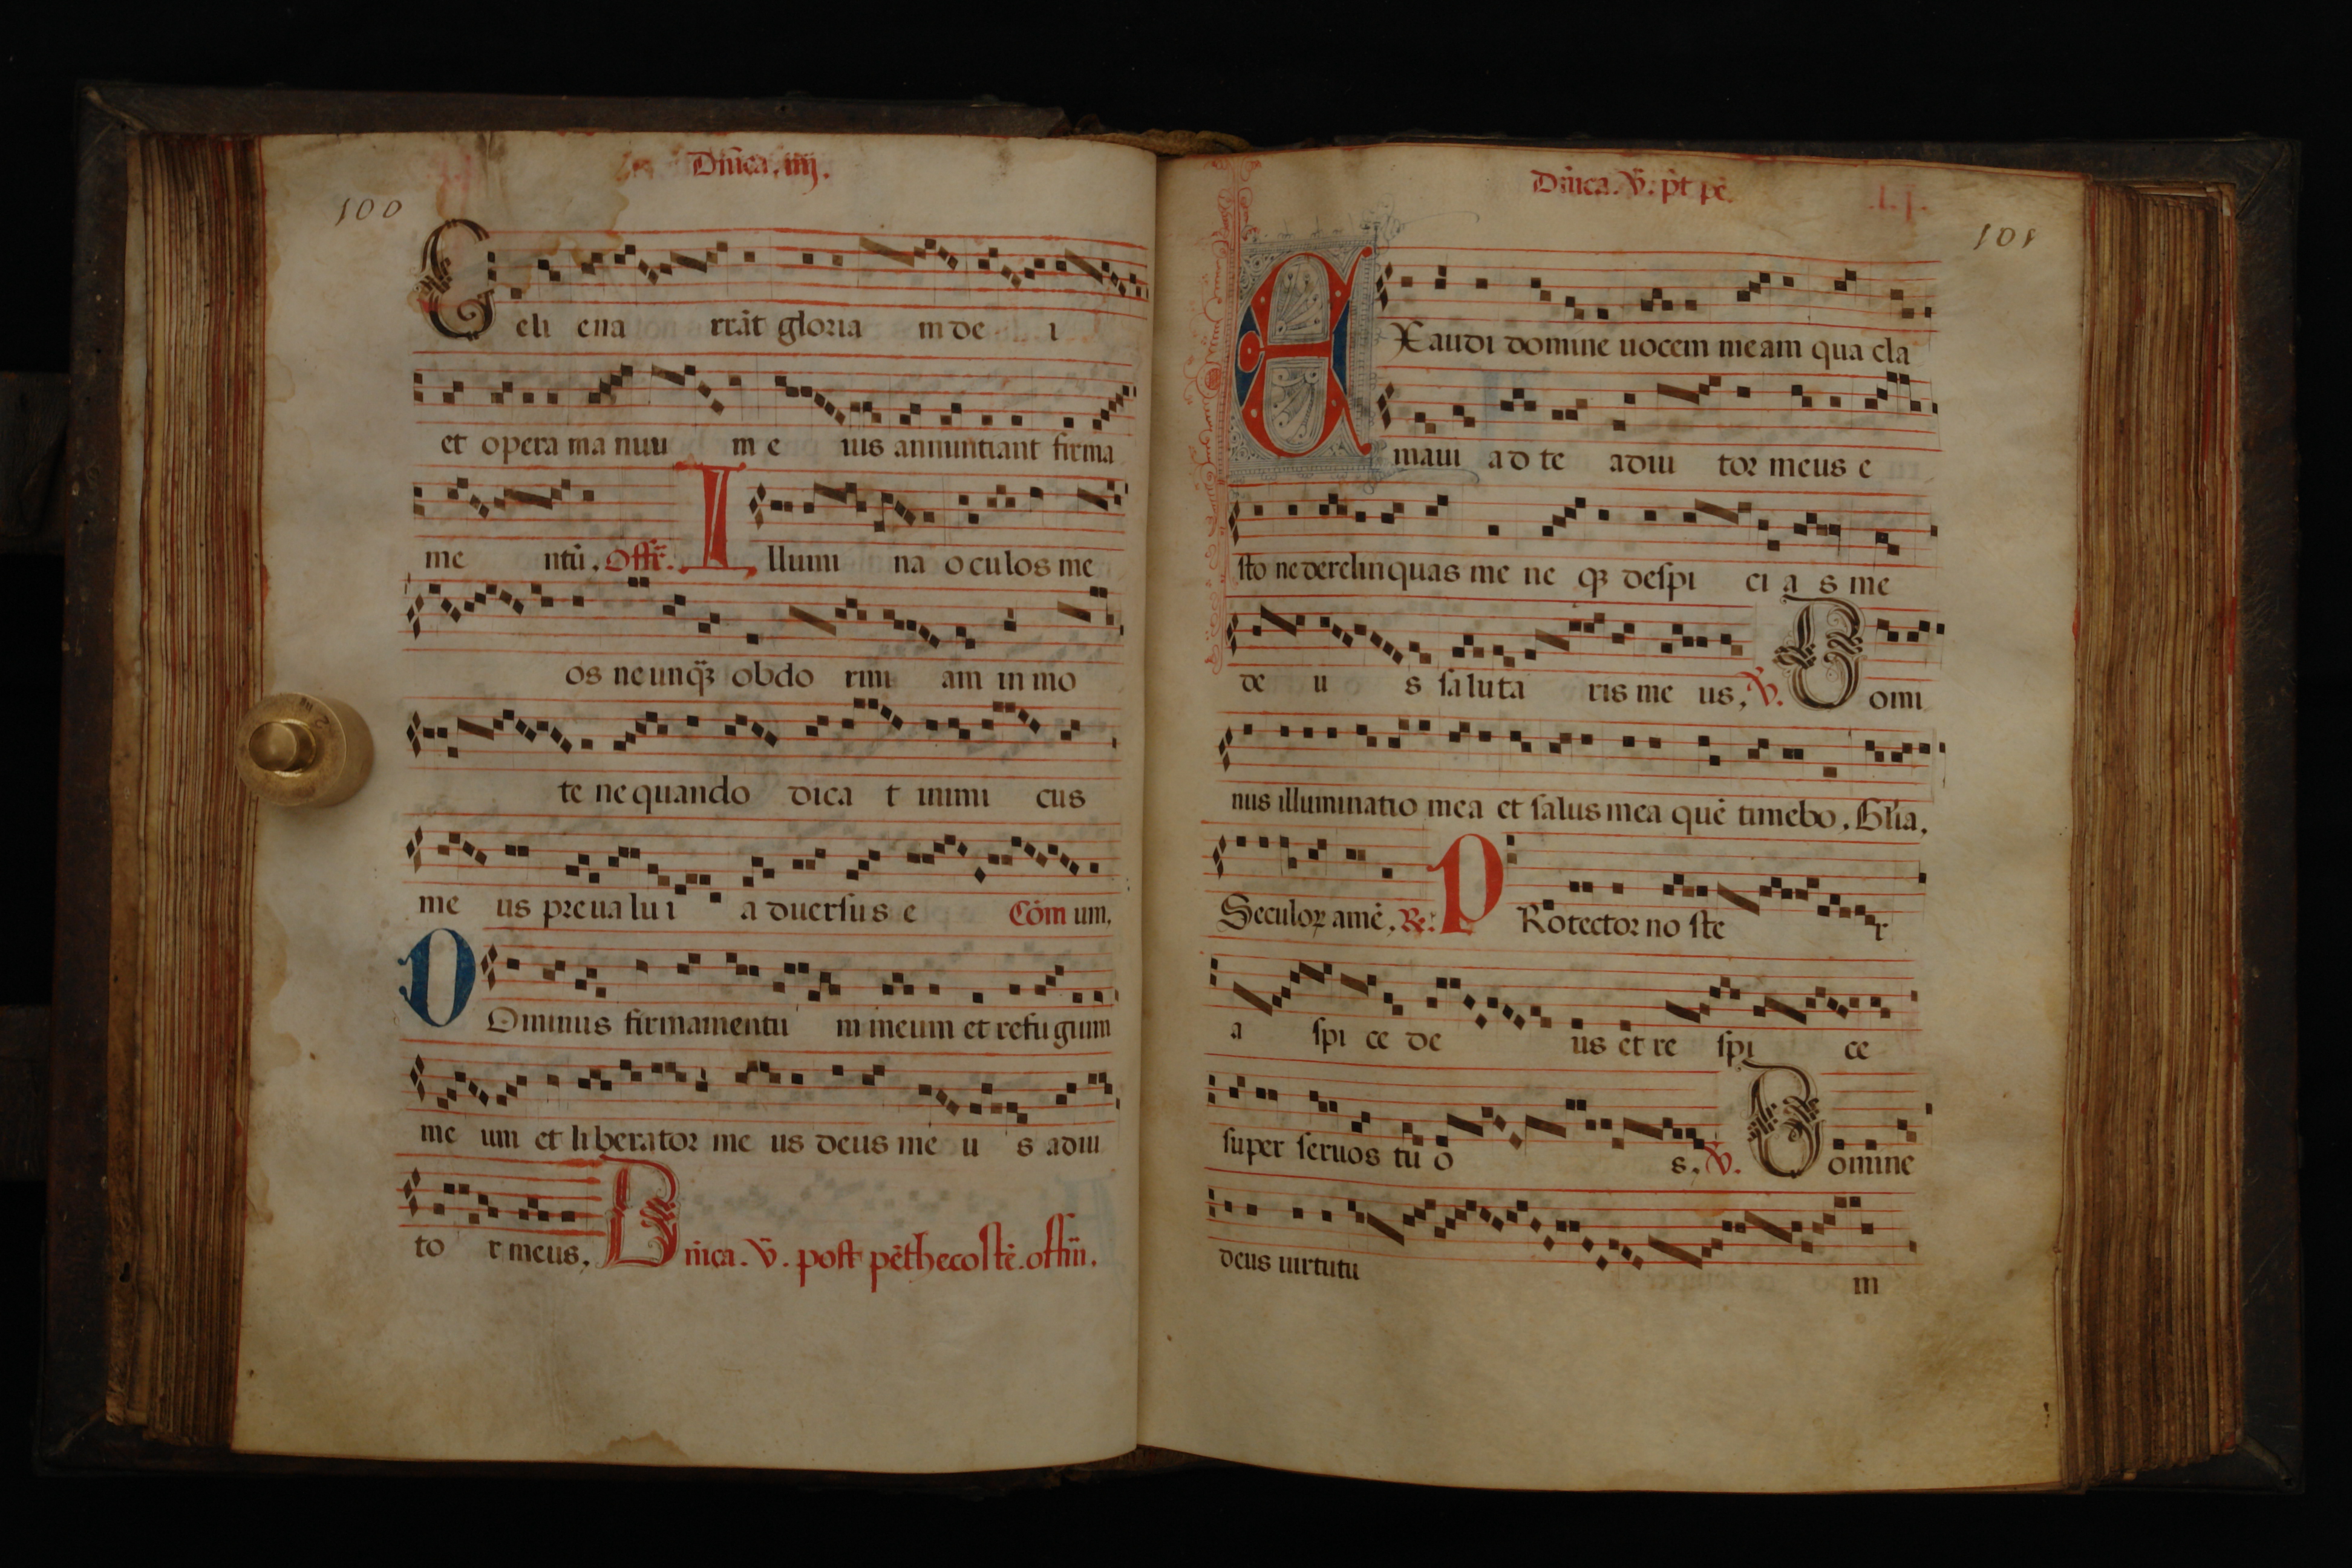 Dñica. iiij.
100
Celi ena rrāt gloria m de i
et opera ma nuu m e ius annuntiant firma
me ntū. Offr̄. Illumi na oculos me
os ne unq̄ȝ obdo rmi am in mo
te ne quando dica t inimi cus
me us preualu i aduersus e Cōm um.
DOminus firmamentu m meum et refugium
me um et liberator me us deus me u s adiu
to r meus. Dñica. v̄. post pēthecostē. offm̄.
Dñica. v̄. p̄t pē.
101
EXaudi domine uocem meam qua cla
maui ad te adiu tor meus e
sto ne derelinquas me ne qȝ despi ci a s me
de u s saluta ris me us, ℣. Domi
nus illuminatio mea et salus mea quē timebo. Glīa.
Seculoꝝ amē. ℟. PRotector no ste r
a spi ce de us et re spi ce
super seruos tu o s. ℣. Domine
deus uirtutu m